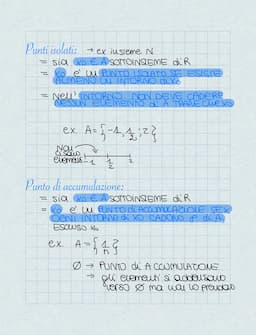 Punti isolati: → ex insieme N
= sia x0 ∈ A SOTTOINSIEME di R
= x0 e' un PUNTO ISOLATO SE ESISTE
ALMENO UN INTORNO di x0
= NELL' INTORNO NON DEVE CADERE
NESSUN ELEMENTO di A TRANNE
ex. A={-1, 1/2, 2}
NON
ci sono
elementi
1 2
Punto di accumulazione:
= sia x0 ∈ A SOTTOINSIEME di R
= x0 e' UN PUNTO di ACCUMULAZIONE SE
OGNI INTORNO di x0 CADONO di A
ESCLUSO x0
ex. A={1/n}
0 → PUNTO di ACCUMULAZIONE
→ gli elementi si addensano
verso 0 ma mai lo